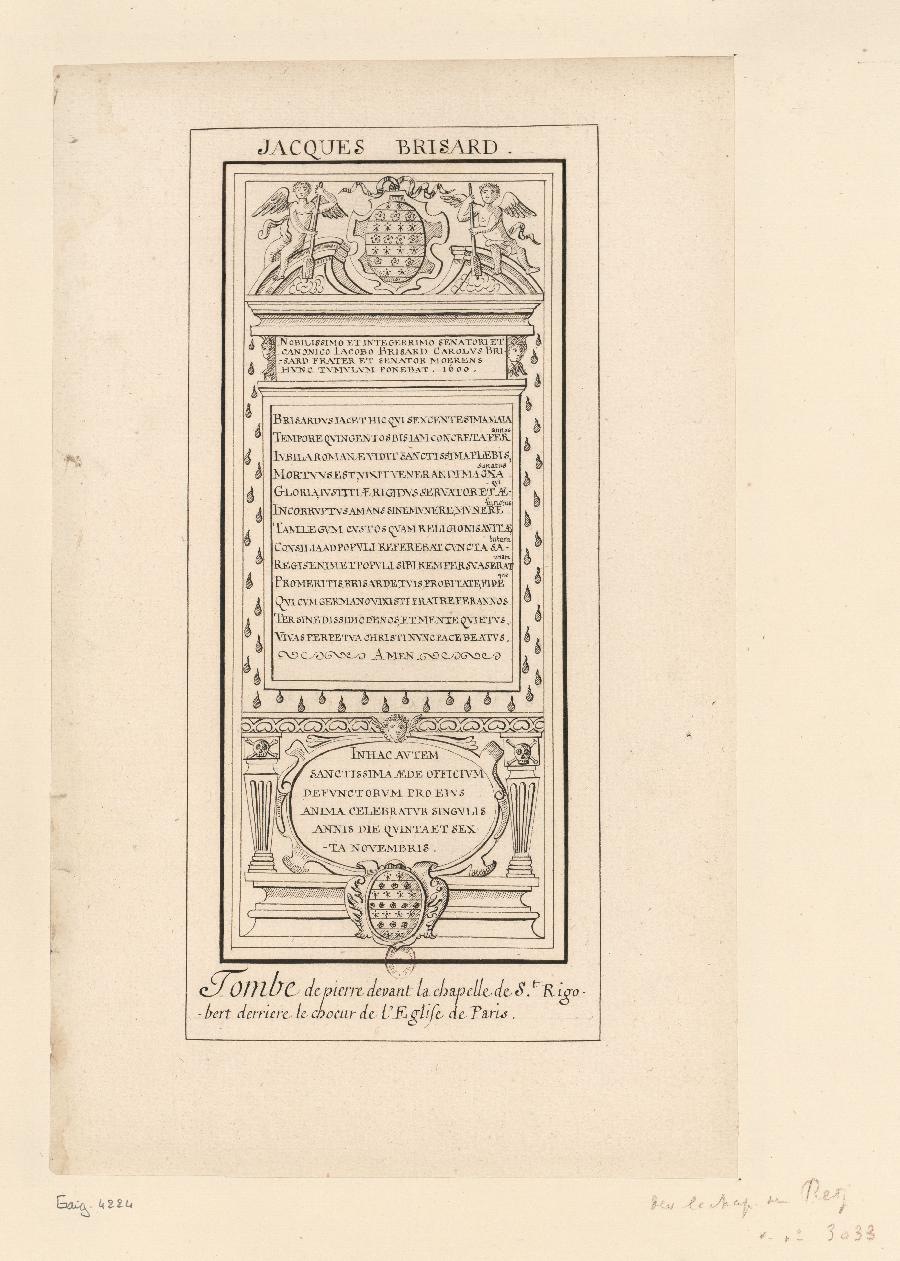 JACQUES BRISARD.
NOBILISSIMO ET INTEGERRIMO SENATORI ET
CANONICO IACOBO BRISARD CAROLVS BRI-
-SARD FRATER ET SENATOR MOERENS
HVNC TVMVLVM PONEBAT. 1600.
BRISARDVS IACET HIC QVI SEXCENTESIMA NAIA
TEMPORE QVINGENTOS BIS IAM CONCRETA PER annos
IVBILA ROMANÆ VIDIT SANCTISSIMA PLEBIS,
MORTVVS EST, VIXIT VENERANDI MAGNA senatus
GLORIA, IVSTITIÆ RIGIDVS SERVATOR ET Æ- -qui
INCORRVPTVS AMANS SINE MVNERE, MVNERE functus
TAM LEGVM CVSTOS QVAM RELIGIONIS AVITÆ
CONSILIA AD POPVLI REFEREBAT CVNCTA SA- lutem
REGIS ENIM ET POPVLI SIBI REM PERSVASERAT vnam
PRO MERITIS BRISARDE, TVIS PROBITATE, FIDE que
QVI CVM GERMANO VIXISTI FRATRE PER ANNOS
TER SINE DISSIDIO DENOS, ET MENTE QVIETVS,
VIVAS PERPETVA CHRISTI NVNC PACE BEATVS.
AMEN.
IN HAC AVTEM
SANCTISSIMA ÆDE OFFICIVM
DEFVNCTORVM PRO EIVS
ANIMA CELEBRATVR SINGVLIS
ANNIS DIE QVINTA ET SEX
-TA NOVEMBRIS.
Tombe de pierre devant la chapelle de S.t Rigo-
-bert derriere le choeur de L'Eglise de Paris.
Gaig. 4224
3033